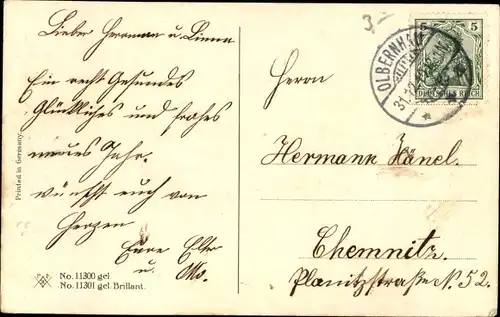 3-
Lieber Herrman u.
Ein recht Gesundes
Glückliches und frohes
neues Jahr.
wünscht euch von
Herzen
Eure
u.
Printed in Germany
No. 11300 gel.
No. 11301 gel. Brillant.
5 5
DEUTSCHES REICH
OLBERNHAU
31.12
Herrn
Hermann Hänel.
Chemnitz.
Planitzstraße N. 52.